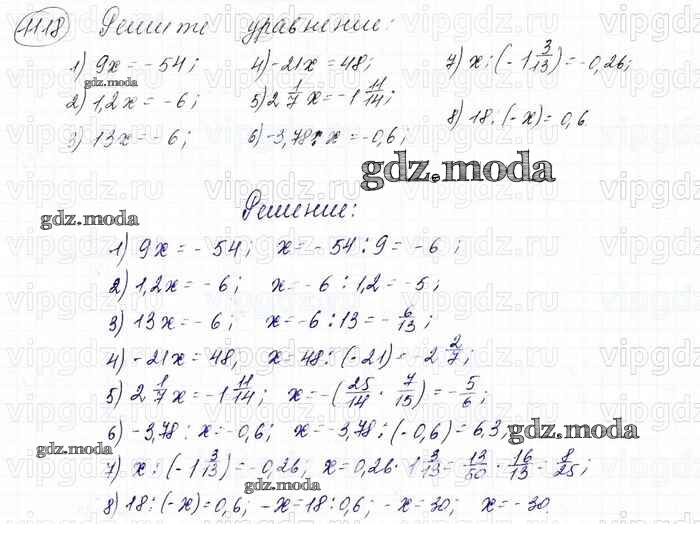 1118 Решите уравнение:
1) 9x = -54;
2) 1,2x = -6;
3) 13x = -6;
4) -21x = 48;
5) 2 1/7 x = -1 11/14;
6) -3,78 : x = -0,6;
7) x : (-1 3/13) = -0,26;
8) 18 : (-x) = 0,6
gdz.moda
gdz.moda
gdz.moda
Решение:
1) 9x = -54; x = -54 : 9 = -6;
2) 1,2x = -6; x = -6 : 1,2 = -5;
3) 13x = -6; x = -6 : 13 = -6/13;
4) -21x = 48, x = 48 : (-21) = -2 2/7;
5) 2 1/7 x = -1 11/14; x = -(25/14 · 7/15) = -5/6;
6) -3,78 : x = -0,6; x = -3,78 : (-0,6) = 6,3;
gdz.moda
gdz.moda
7) x : (-1 3/13) = -0,26; x = 0,26 · 1 3/13 = 13/50 · 16/13 = 8/25;
gdz.moda
8) 18 : (-x) = 0,6; -x = 18 : 0,6; -x = 30; x = -30.
vipgdz.ru